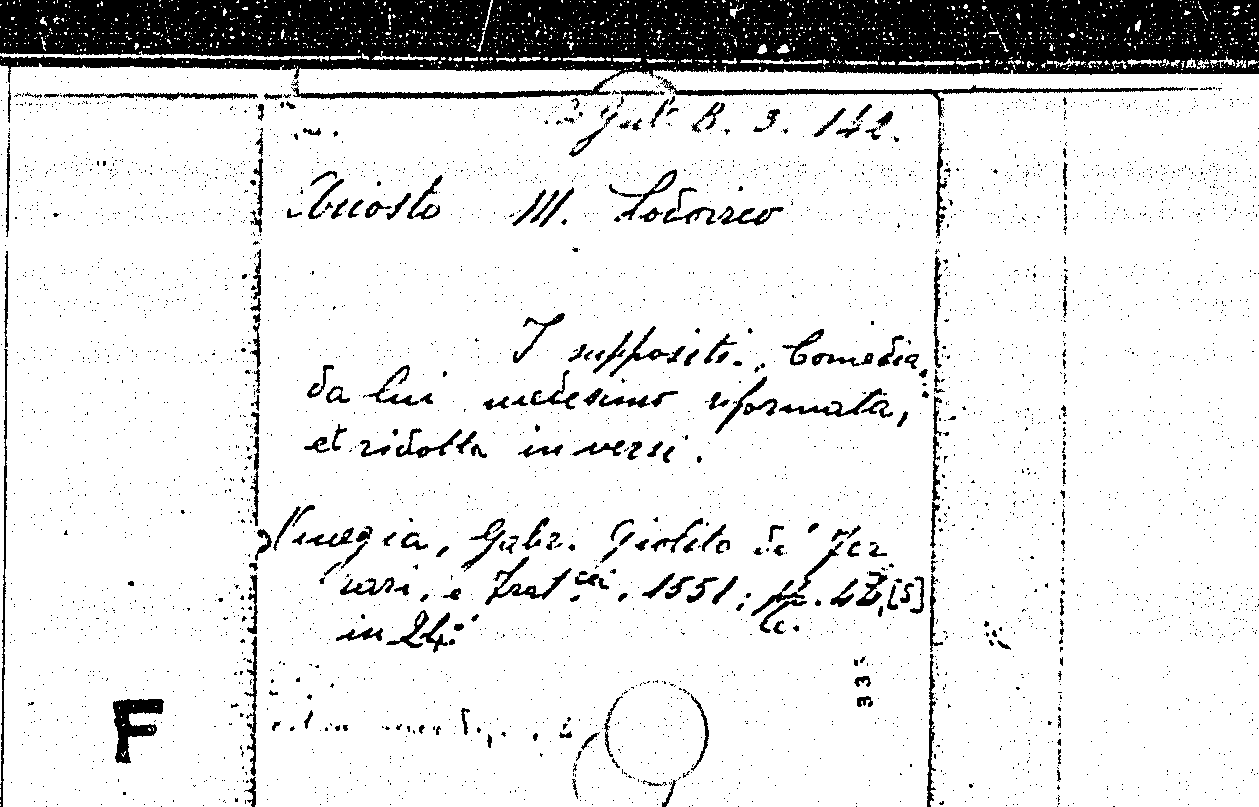 B. 3. 142.
Ariosto M. Lodovico
I suppositi. Comedia,
da lui medesimo riformata,
et ridotta in versi.
Vinegia, Gabr. Giolito de' Fer
rari, e Frat.elli, 1551; [5]
c.
in 24.°
335
F